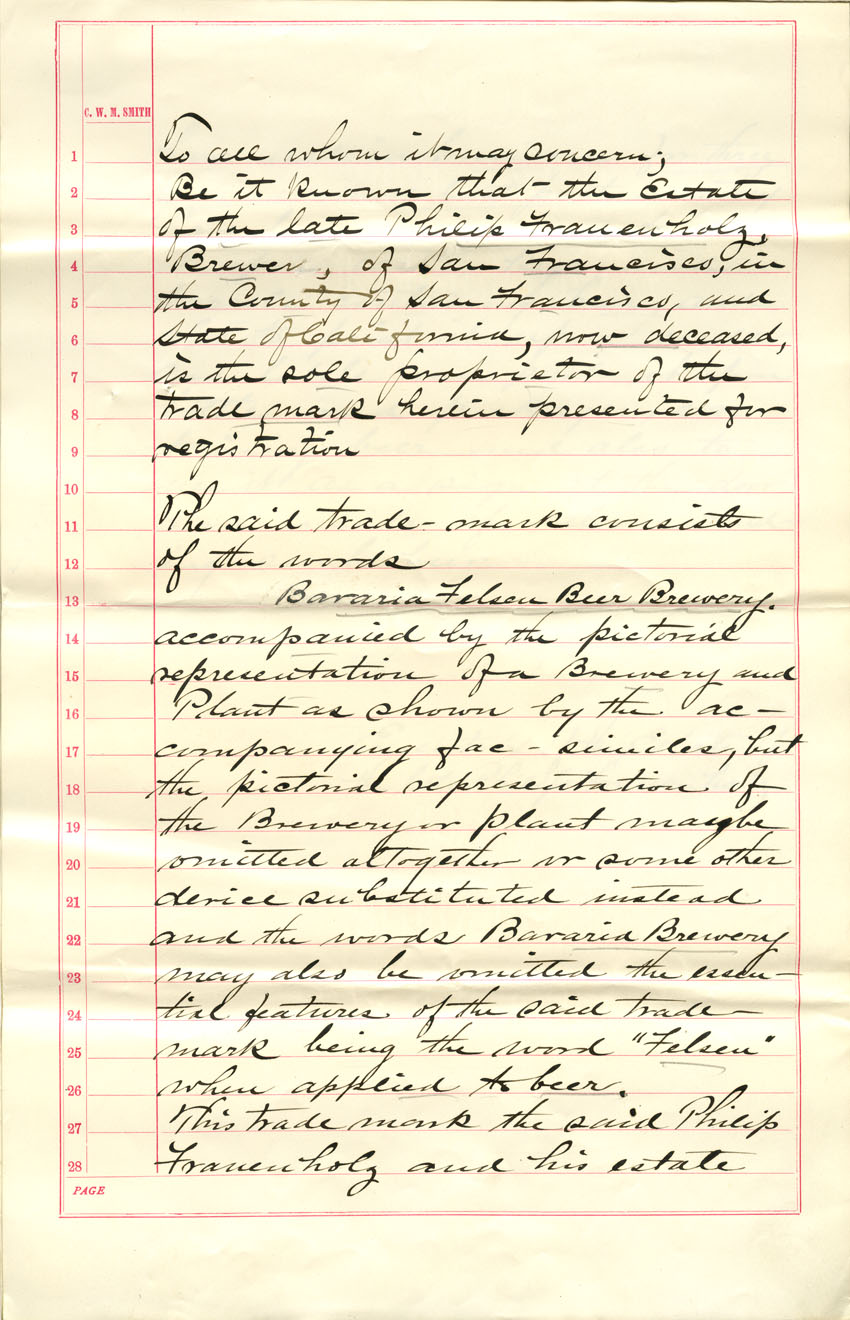 C. W. M. SMITH
1 To all whom it may concern;
2 Be it known that the Estate
3 of the late Philip Frauenholz,
4 Brewer, of San Francisco, in
5 the County of San Francisco, and
6 State of California, now deceased,
7 is the sole proprietor of the
8 trade mark herein presented for
9 registration
10
11 The said trade-mark consists
12 of the words
13 Bavaria Felsen Beer Brewery.
14 accompanied by the pictorial
15 representation of a Brewery and
16 Plant as shown by the ac-
17 companying fac-similes, but
18 the pictorial representation of
19 the Brewery or plant maybe
20 omitted altogether or some other
21 device substituted instead
22 and the words Bavaria Brewery
23 may also be omitted the essen-
24 tial features of the said trade-
25 mark being the word "Felsen"
26 when applied to beer.
27 This trade mark the said Philip
28 Frauenholz and his estate
PAGE